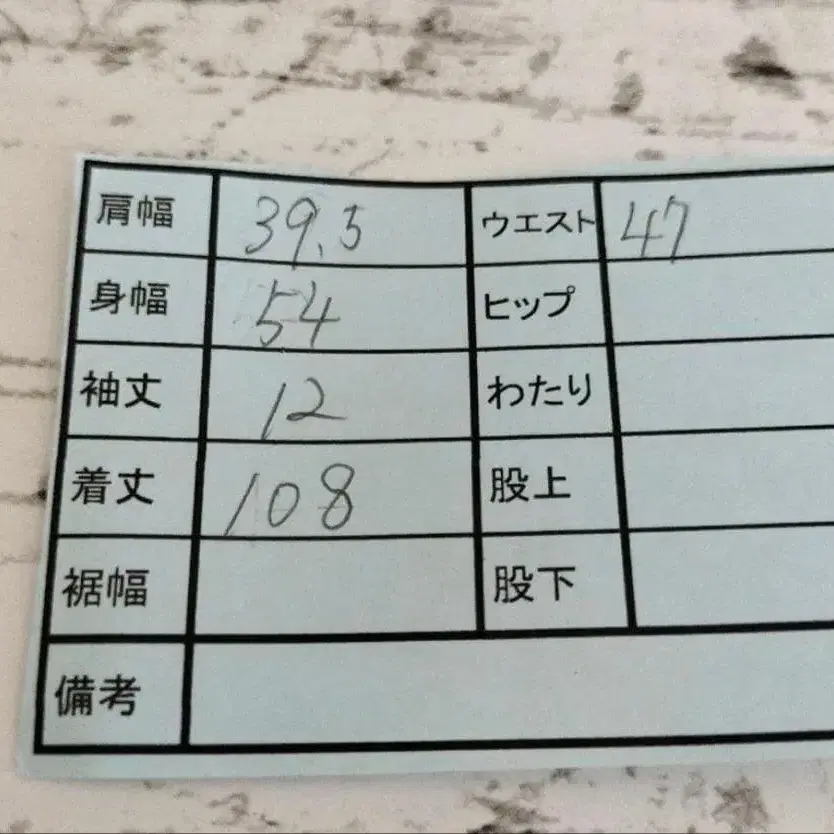 肩幅 39.5 ウエスト 47
身幅 54 ヒップ
袖丈 12 わたり
着丈 108 股上
裾幅 股下
備考